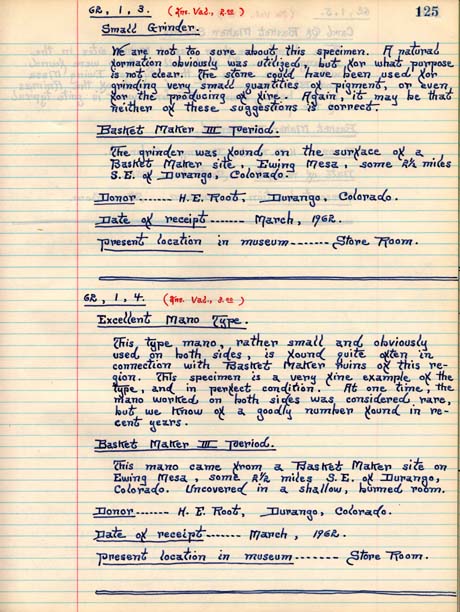 125
62, 1, 3. (Ins. Val., 2.00)
Small Grinder.
We are not too sure about this specimen. A natural
formation obviously was utilized, but for what purpose
is not clear. The stone could have been used for
grinding very small quantities of pigment, or even
for the producing of fire. Again, it may be that
neither of these suggestions is correct.
Basket Maker III Period.
The grinder was found on the surface of a
Basket Maker site, Ewing Mesa, some 2½ miles
S.E. of Durango, Colorado.
Donor------- H.E. Root, Durango, Colorado.
Date of receipt------- March, 1962.
Present location in museum------- Store Room.
62, 1, 4. (Ins. Val., 3.00)
Excellent Mano Type.
This type mano, rather small and obviously
used on both sides, is found quite often in
connection with Basket Maker Ruins of this re-
gion. This specimen is a very fine example of the
type, and in perfect condition. At one time, the
mano worked on both sides was considered rare,
but we know of a goodly number found in re-
cent years.
Basket Maker III Period.
This mano came from a Basket Maker site on
Ewing Mesa, some 2½ miles S.E. of Durango,
Colorado. Uncovered in a shallow, burned room.
Donor------- H. E. Root, Durango, Colorado.
Date of receipt------- March, 1962.
Present location in museum------- Store Room.